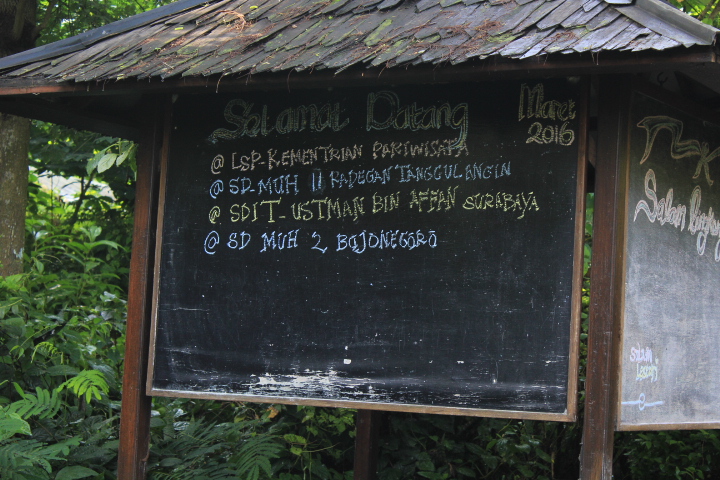 Selamat Datang
Maret 2016
@ LSP-KEMENTRIAN PARIWISATA
@ SD-MUH II KADEGAN TANGGULANGIN
@ SDIT-USTMAN BIN AFFAN SURABAYA
@ SD MUH 2 BOJONEGORO
Salam
Salam
Lestari